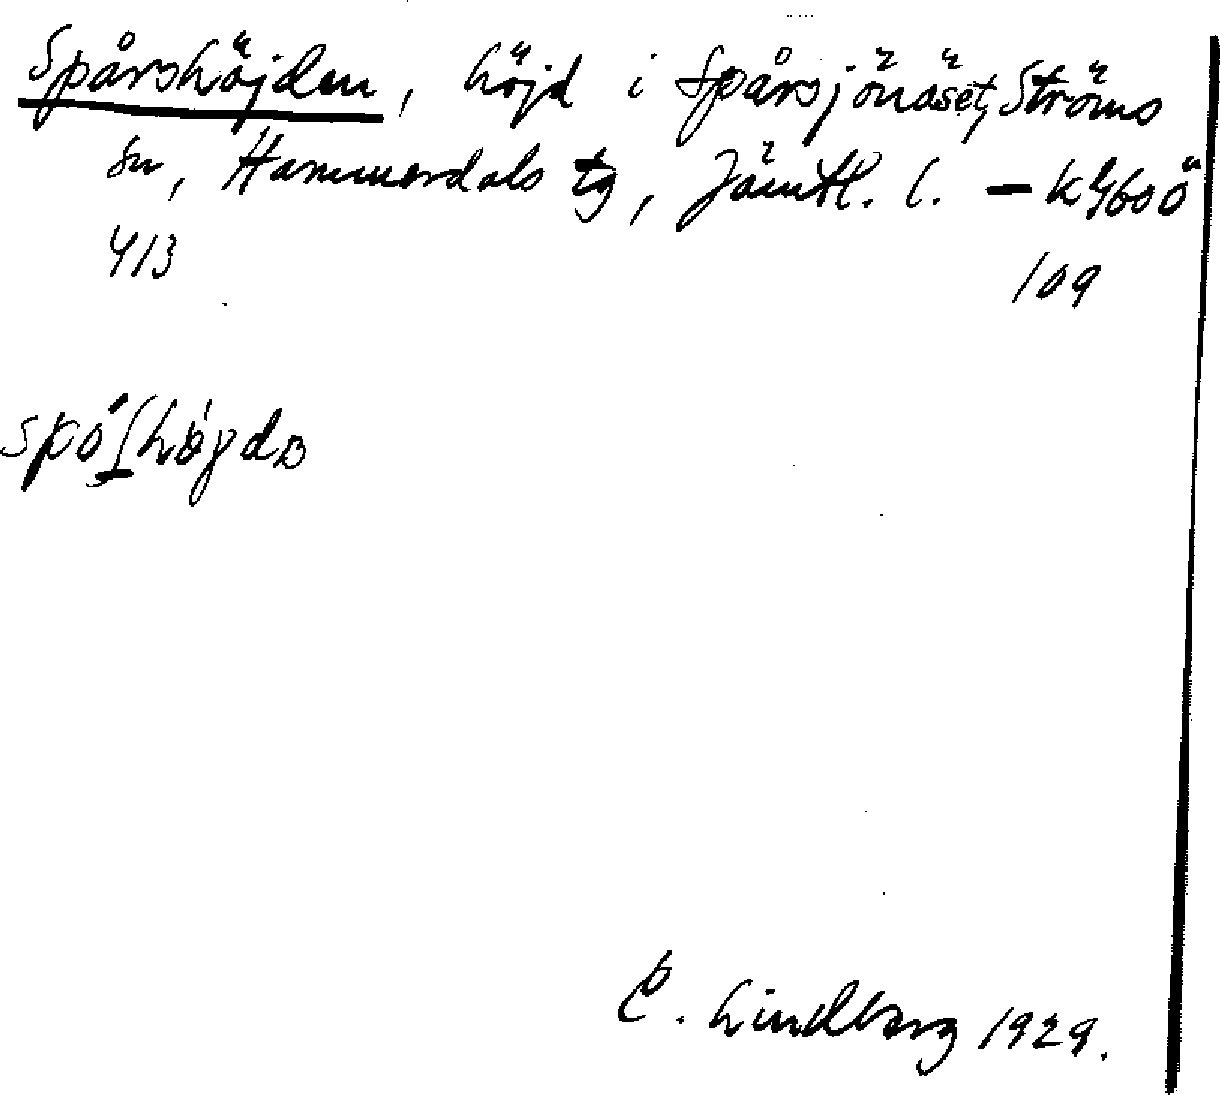 Spårshöjden, höjd i Spårsjönäset, Ströms
sn, Hammerdals tg, Jämtl. l. – kbl 60 Ö
413 109
C. Lindberg 1929.